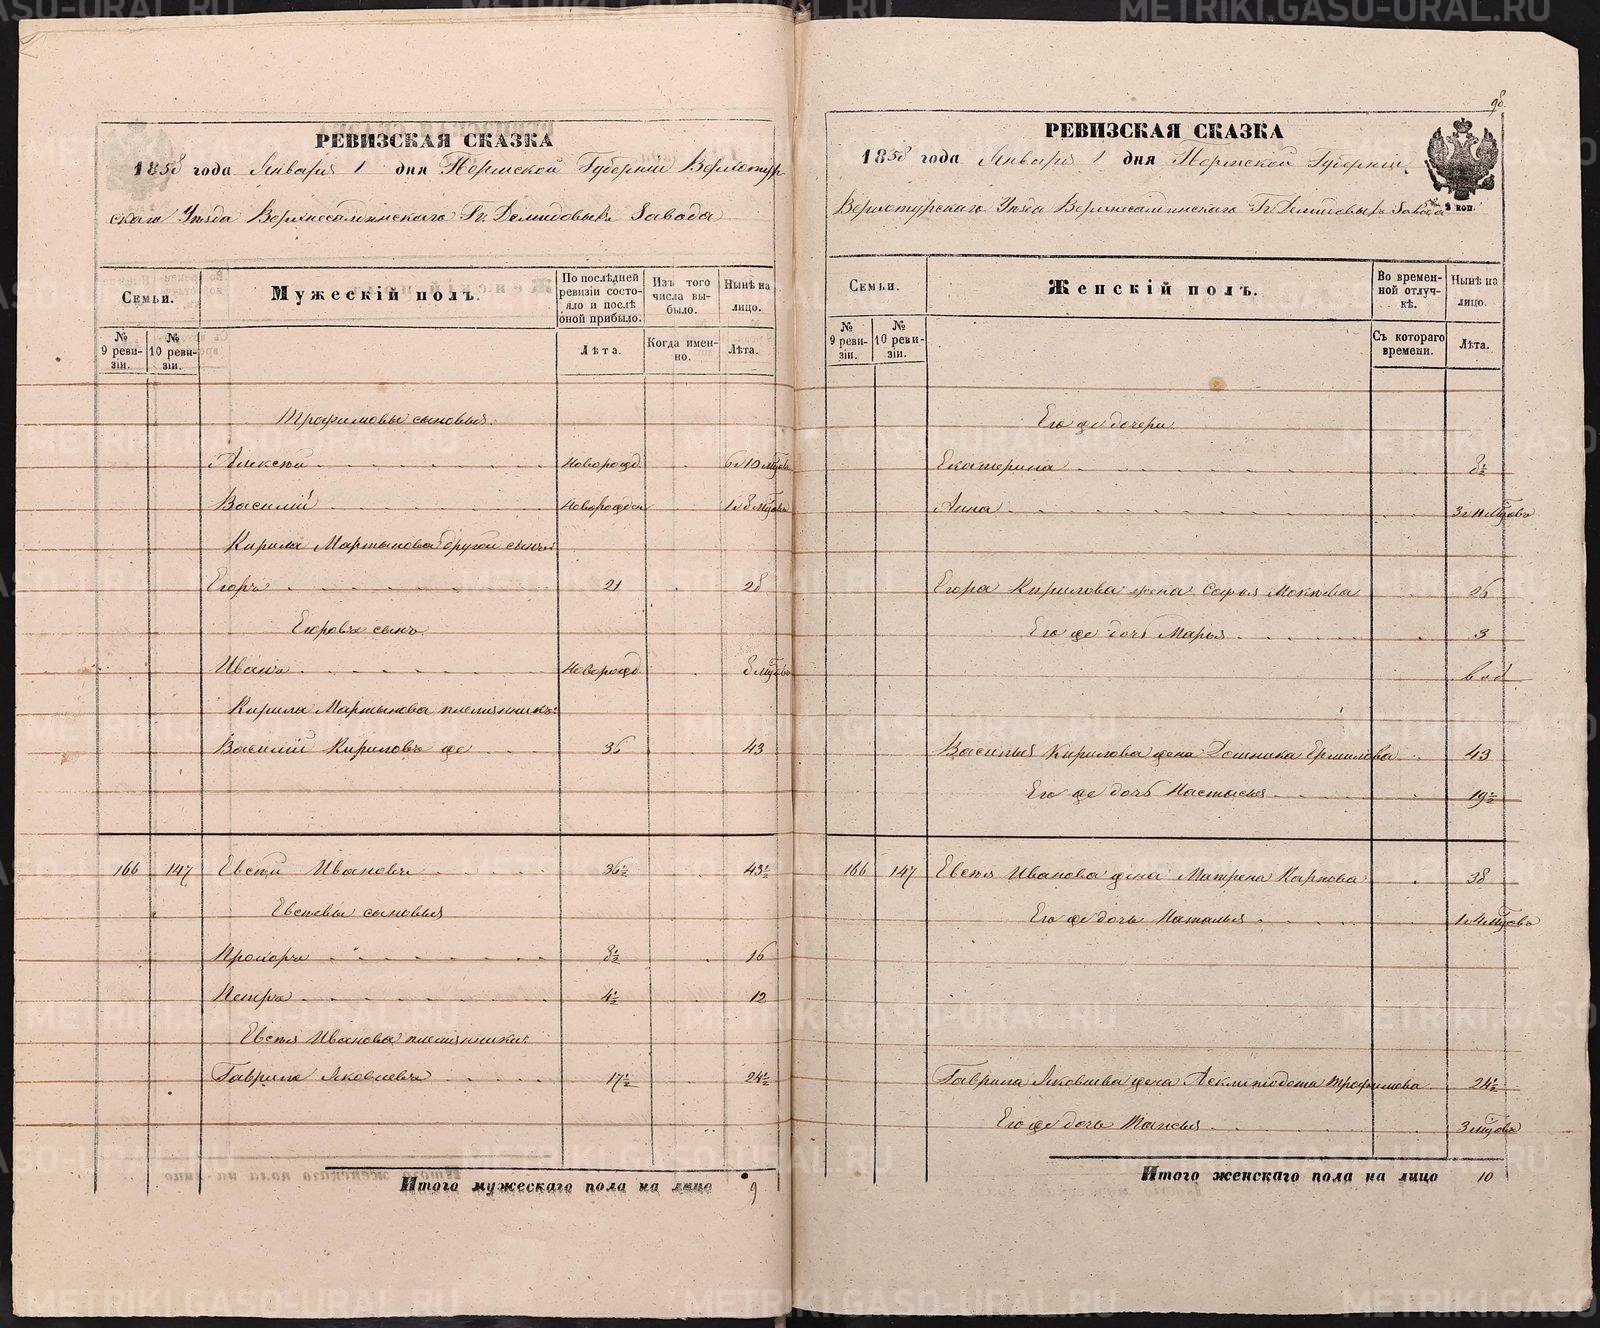 РЕВИЗСКАЯ СКАЗКА
1858 года Января 1 дня Пермской Губернiи Верхотур-
скаго Уѣзда Верхнесалдинскаго Гг. Демидовыхъ Завода
Семьи.
Мужескiй полъ.
По послѣдней ревизiи состояло и послѣ оной прибыло.
Изъ того числа выбыло.
Нынѣ на лицо.
№ 9 ревизiи.
№ 10 ревизiи.
Лѣта.
Когда именно.
Лѣта.
Трофимовы сыновья.
Алексѣй новорожд. 6 л 10 мѣсцовъ
Василiй новорожден 1 л 8 мѣсцовъ
Кирила Мартынова другой сынъ
Егоръ 21 28
Егоровъ сынъ
Иванъ новорожд 8 мѣсцовъ
Кирила Мартынова племянникъ
Василiй Кириловъ же 36 43
166 147 Евсѣй Ивановъ 36½ 43½
Евсѣевы сыновья
Прохоръ 8½ 16
Петръ 4½ 12
Евсѣя Иванова племянники:
Гаврило Яковлевъ 17½ 24½
Итого мужескаго пола на лицо 9
98
РЕВИЗСКАЯ СКАЗКА
1858 года Января 1 дня Пермской Губернiи
Верхотурскаго Уѣзда Верхнесалдинскаго Гг. Демидовыхъ Завода
Семьи.
Женскiй полъ.
Во временной отлучкѣ.
Нынѣ на лицо.
№ 9 ревизiи.
№ 10 ревизiи.
Съ котораго времени.
Лѣта.
Его же дочери
Екатерина 8½
Анна 3 л 11 мѣсцовъ
Егора Кирилова жена Софья Мокѣева 26
Его же дочь Марья 3
Василья Кирилова жена Домника Ермилова 43
Его же дочь Настасья 19½
166 147 Евсѣя Иванова жена Матрена Карпова 38
Его же дочь Наталья 1 л 4 мѣсцовъ
Гаврила Яковлева жена Асклипiодота Трофимова 24½
Его же дочь Таисья 3 мѣсцовъ
Итого женскаго пола на лицо 10
METRIKI.GASO-URAL.RU